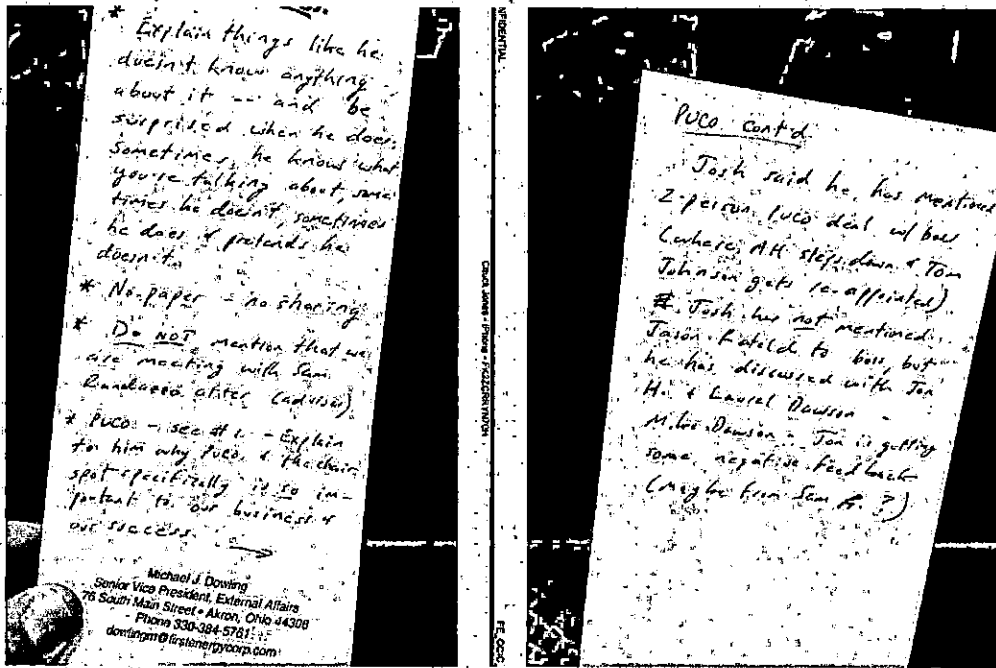 * Explain things like he
doesn't know anything
about it -- and be
surprised when he does.
Sometimes, he knows what
you're talking about, some
times he doesn't, sometimes
he does & pretends he
doesn't.
* No paper - no sharing
* Do NOT mention that we
are meeting with Sam
Randazzo after (advisor)
* PUCO - see #1 - Explain
to him why PUCO & the chair
spot specifically is so im-
portant to our business &
our success.
Michael J. Dowling
Senior Vice President, External Affairs
76 South Main Street • Akron, Ohio 44308
Phone 330-384-5761
dowlingm@firstenergycorp.com
NFIDENTIAL
FE_CCIC
PUCO cont'd
Josh said he has mentioned
2-person PUCO deal w/ boss
(where AH steps down & Tom
Johnson gets re-appointed)
Josh has not mentioned
Jason to boss, but
he has discussed with Jon
Hu. & Laurel Dawson -
Mike Dawson - Jon is getting
some negative feedback
(maybe from Sam R. ?)